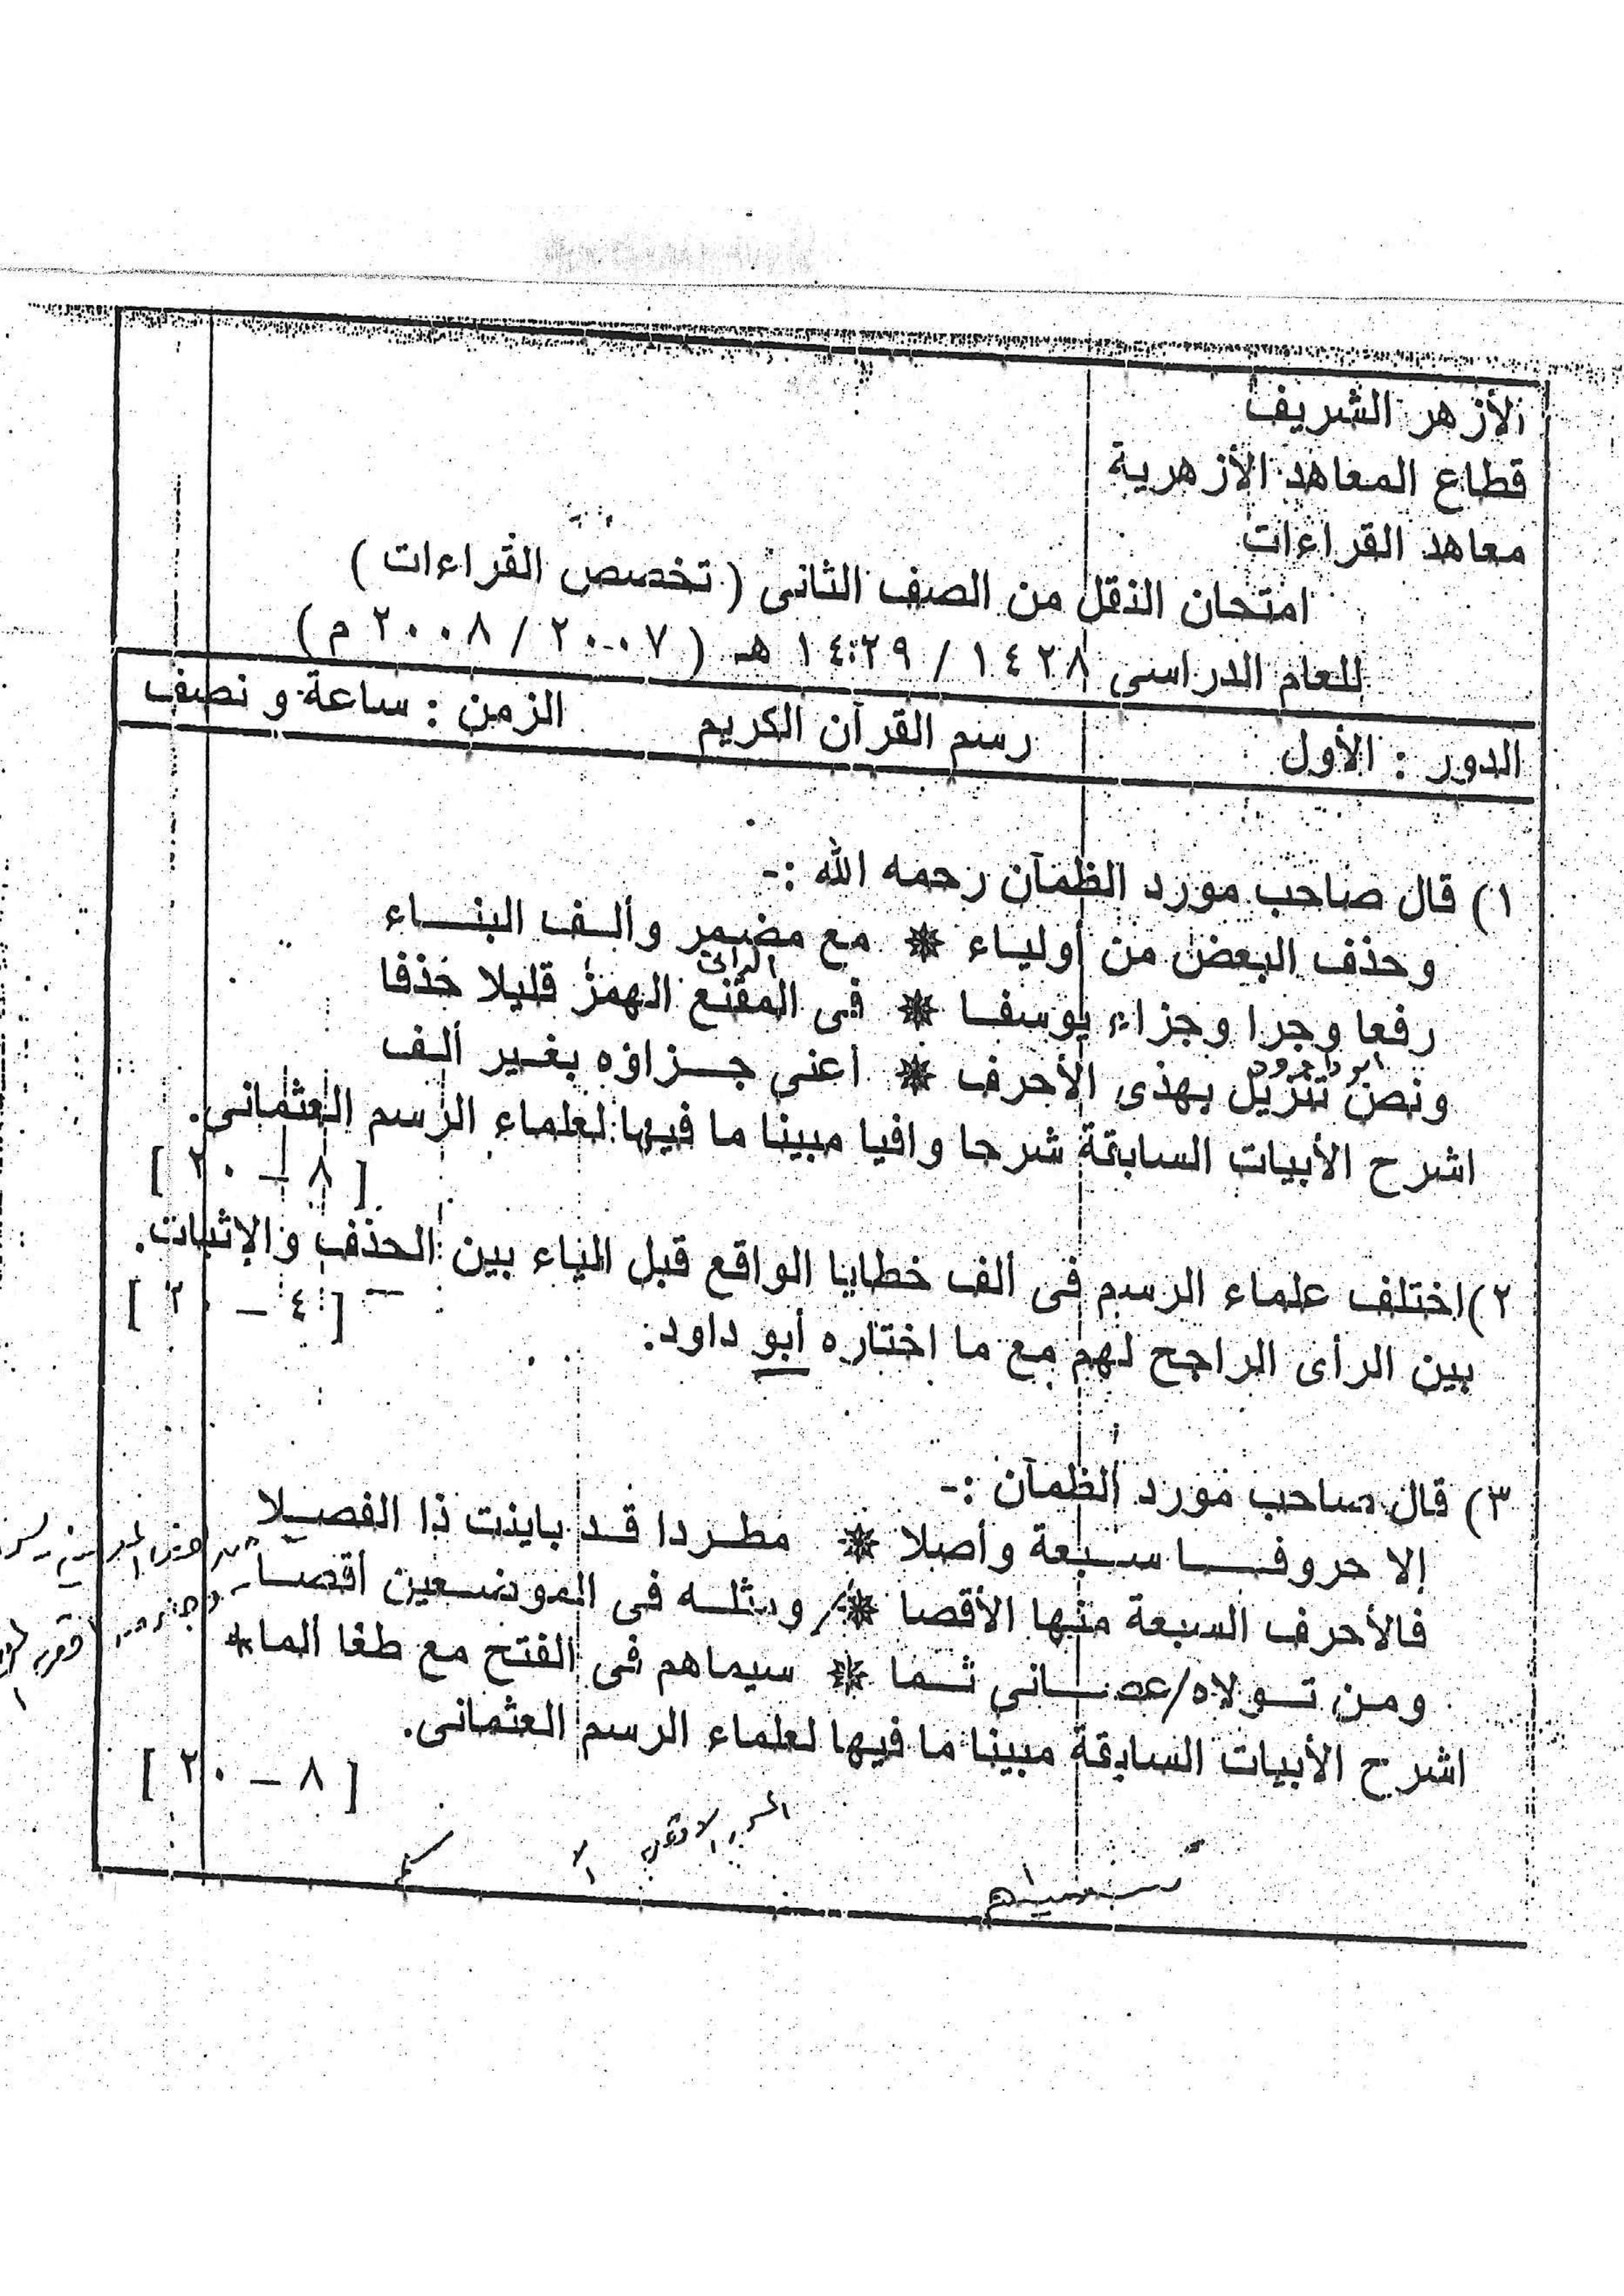 الأزهر الشريف
قطاع المعاهد الأزهرية
معاهد القراءات
امتحان النقل من الصف الثانى ( تخصص القراءات )
للعام الدراسى ١٤٢٨ / ١٤٢٩ هـ ( ٢٠٠٧ / ٢٠٠٨ م )
الدور : الأول رسم القرآن الكريم الزمن : ساعة و نصف
١) قال صاحب مورد الظمآن رحمه الله :-
وحذف البعض من أولياء * مع مضمر وألف البناء
الدانى
رفعا وجرا وجزاء يوسفا * فى المقنع الهمز قليلا حذفا
ابو داوود
ونص تنزيل بهذى الأحرف * أعنى جزاؤه بغير ألف
اشرح الأبيات السابقة شرحا وافيا مبينا ما فيها لعلماء الرسم العثمانى.
[ ٨ – ٢٠ ]
٢) اختلف علماء الرسم فى ألف خطايا الواقع قبل الياء بين الحذف والإثبات.
بين الرأى الراجح لهم مع ما اختاره أبو داود.
[ ٤ – ٢٠ ]
٣) قال صاحب مورد الظمآن :-
إلا حروفا سبعة وأصلا * مطردا قد باينت ذا الفصلا
فالأحرف السبعة منها الأقصا * ومثله فى الموضعين أقصا
ومن تولاه/عصانى ثما * سيماهم فى الفتح مع طغا الماء
اشرح الأبيات السابقة مبينا ما فيها لعلماء الرسم العثمانى.
[ ٨ – ٢٠ ]